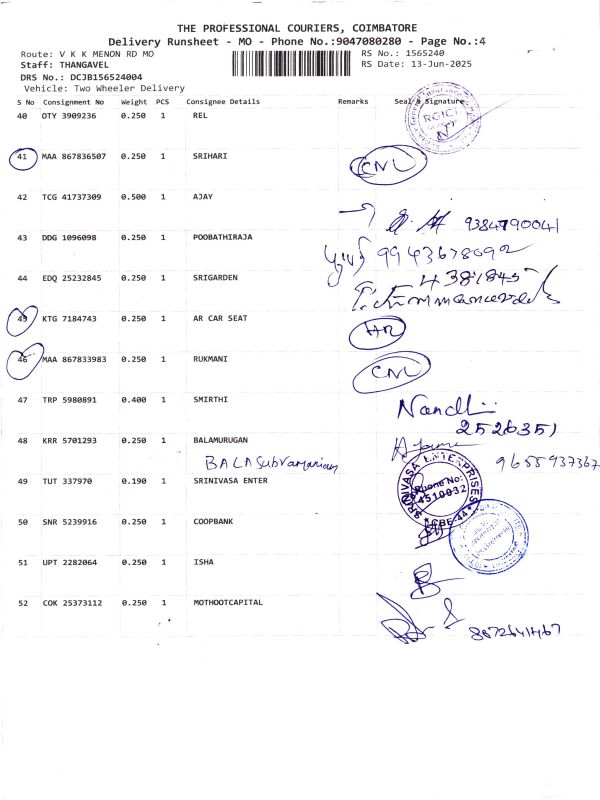 THE PROFESSIONAL COURIERS, COIMBATORE
Delivery Runsheet - MO - Phone No.:9047080280 - Page No.:4
Route: V K K MENON RD MO RS No.: 1565240
Staff: THANGAVEL RS Date: 13-Jun-2025
DRS No.: DCJB156524004
Vehicle: Two Wheeler Delivery
S No Consignment No Weight PCS Consignee Details Remarks Seal & Signature
40 OTY 3909236 0.250 1 REL
RGICL
41 MAA 867836507 0.250 1 SRIHARI CNL
42 TCG 41737309 0.500 1 AJAY
9384790041
43 DDG 1096098 0.250 1 POOBATHIRAJA
9943678092
44 EDQ 25232845 0.250 1 SRIGARDEN
45 KTG 7184743 0.250 1 AR CAR SEAT
46 MAA 867833983 0.250 1 RUKMANI CNL
47 TRP 5980891 0.400 1 SMIRTHI Nandhi
2526351
48 KRR 5701293 0.250 1 BALAMURUGAN
BALASubramanian 9655937367
49 TUT 337970 0.190 1 SRINIVASA ENTER
SRINIVASA ENTERPRISES
Phone No:
4510032
CBE-44
50 SNR 5239916 0.250 1 COOPBANK
51 UPT 2282064 0.250 1 ISHA
52 COK 25373112 0.250 1 MOTHOOTCAPITAL